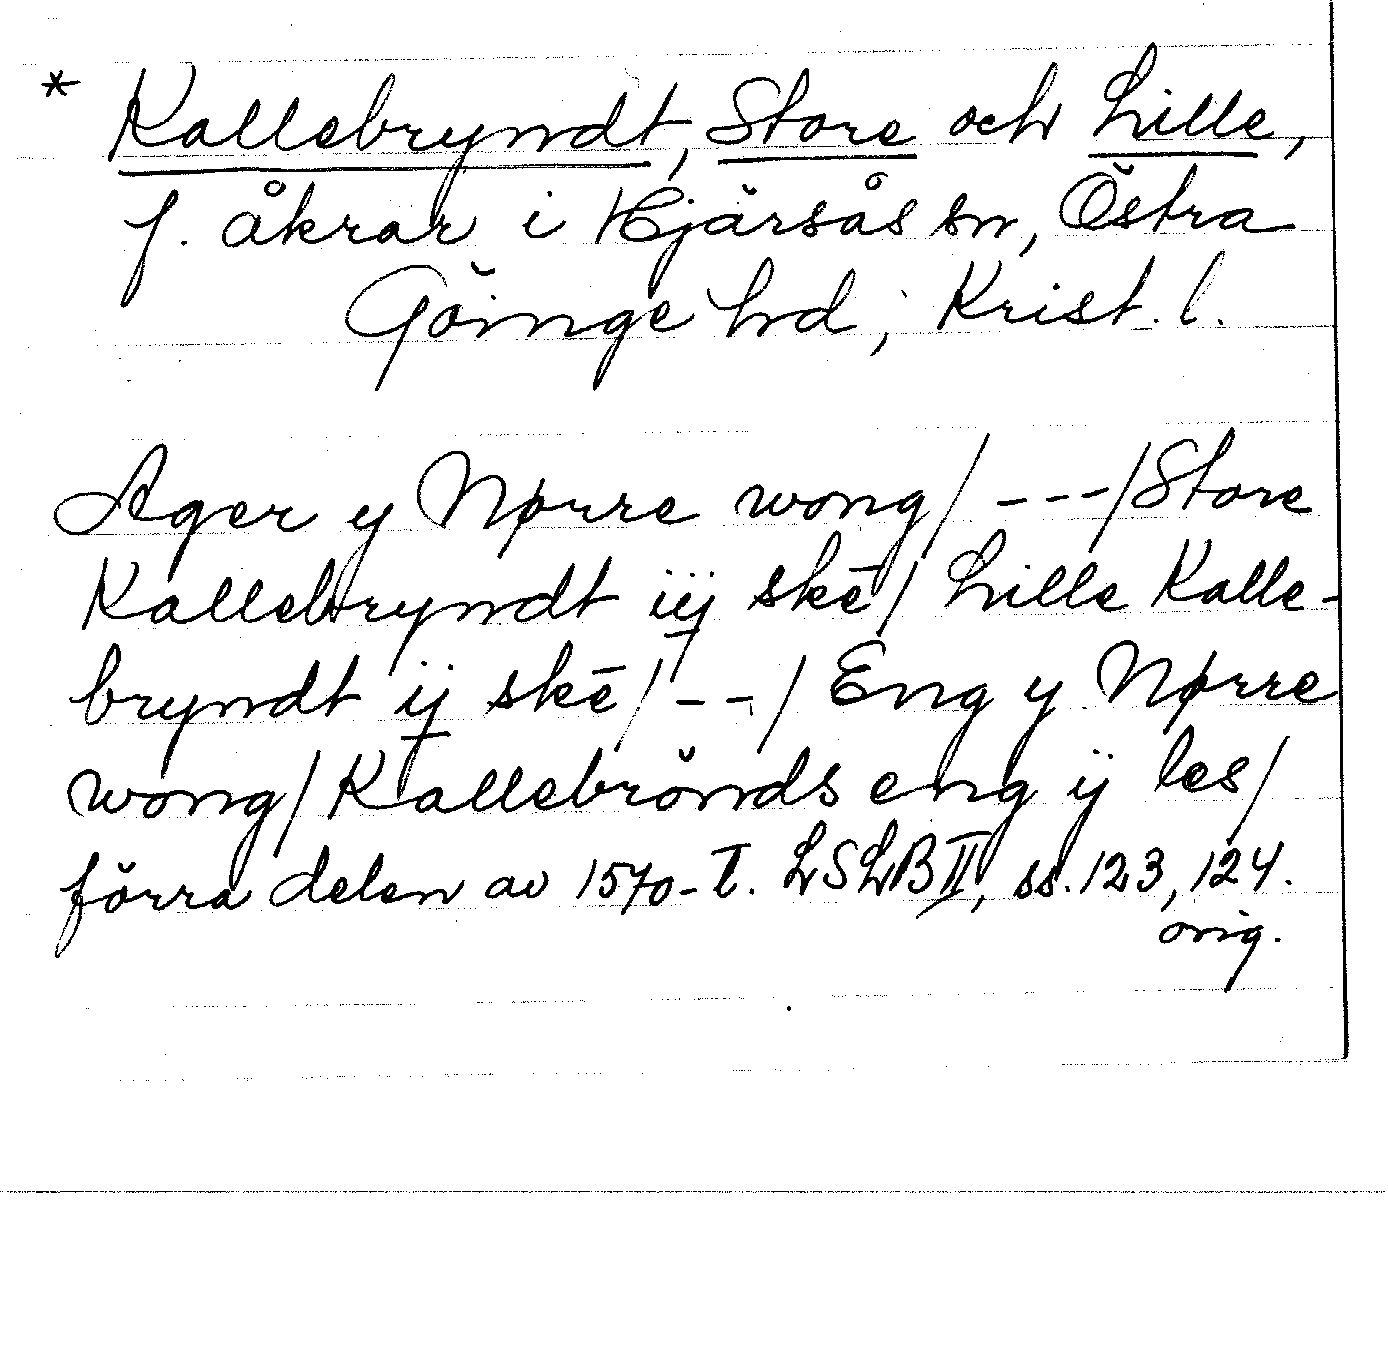 * Kallebryndt, Store och Lille,
f. åkrar i Hjärsås sn, Östra
Göinge hd, Krist. l.
Ager y Nørre wong/ ---/Store
Kallebryndt iij skē/ Lille Kalle-
bryndt ij skē/ --/ Eng y Nørre
wong/ Kallebrönds eng ij les/
förra delen av 1570-t. LSLB II, ss. 123, 124.
orig.